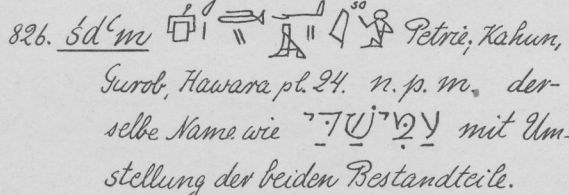 826. śdꜥm so Petrie, Kahun,
Gurob, Hawara pl. 24. n. p. m. der-
selbe Name wie עַמִּישַׁדַּי mit Um-
stellung der beiden Bestandteile.